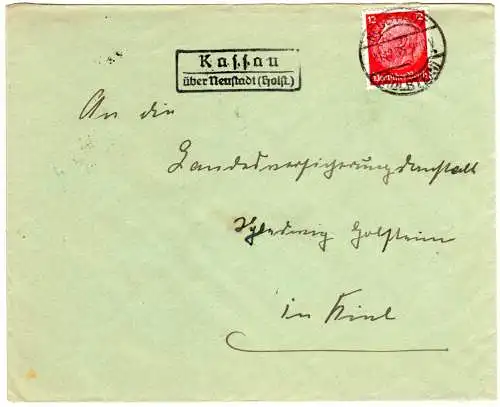 12 12
Kassau
über Neustadt (Holst.)
An die
Landesversicherungsanstalt
Schleswig Holstein
in Kiel